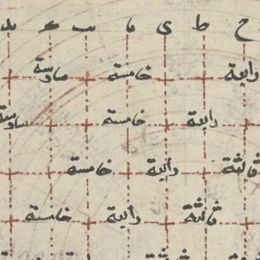 ح ط ى يا يب
رابعة خامسة سادسة
رابعة خامسة سادسة
ثالثة رابعة خامسة
ثالثة رابعة خامسة